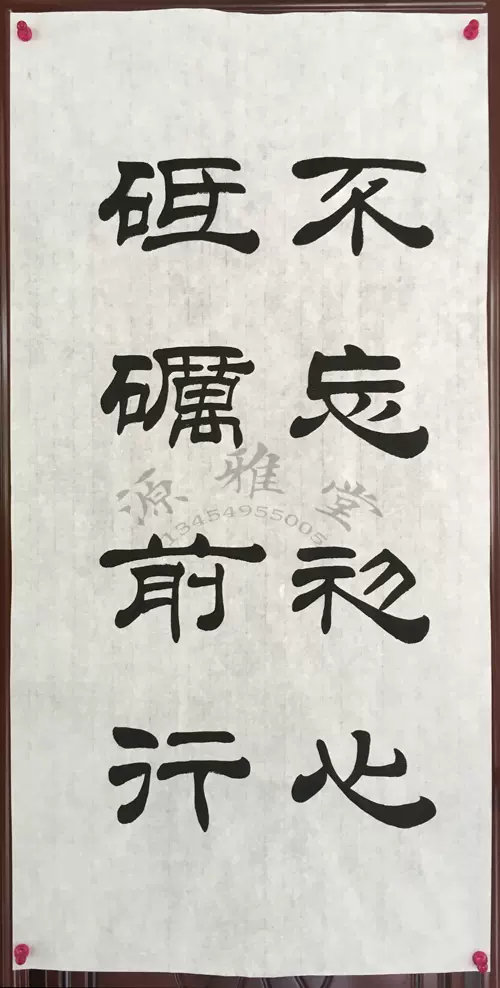 不忘初心
砥礪前行
源雅堂
13454955005